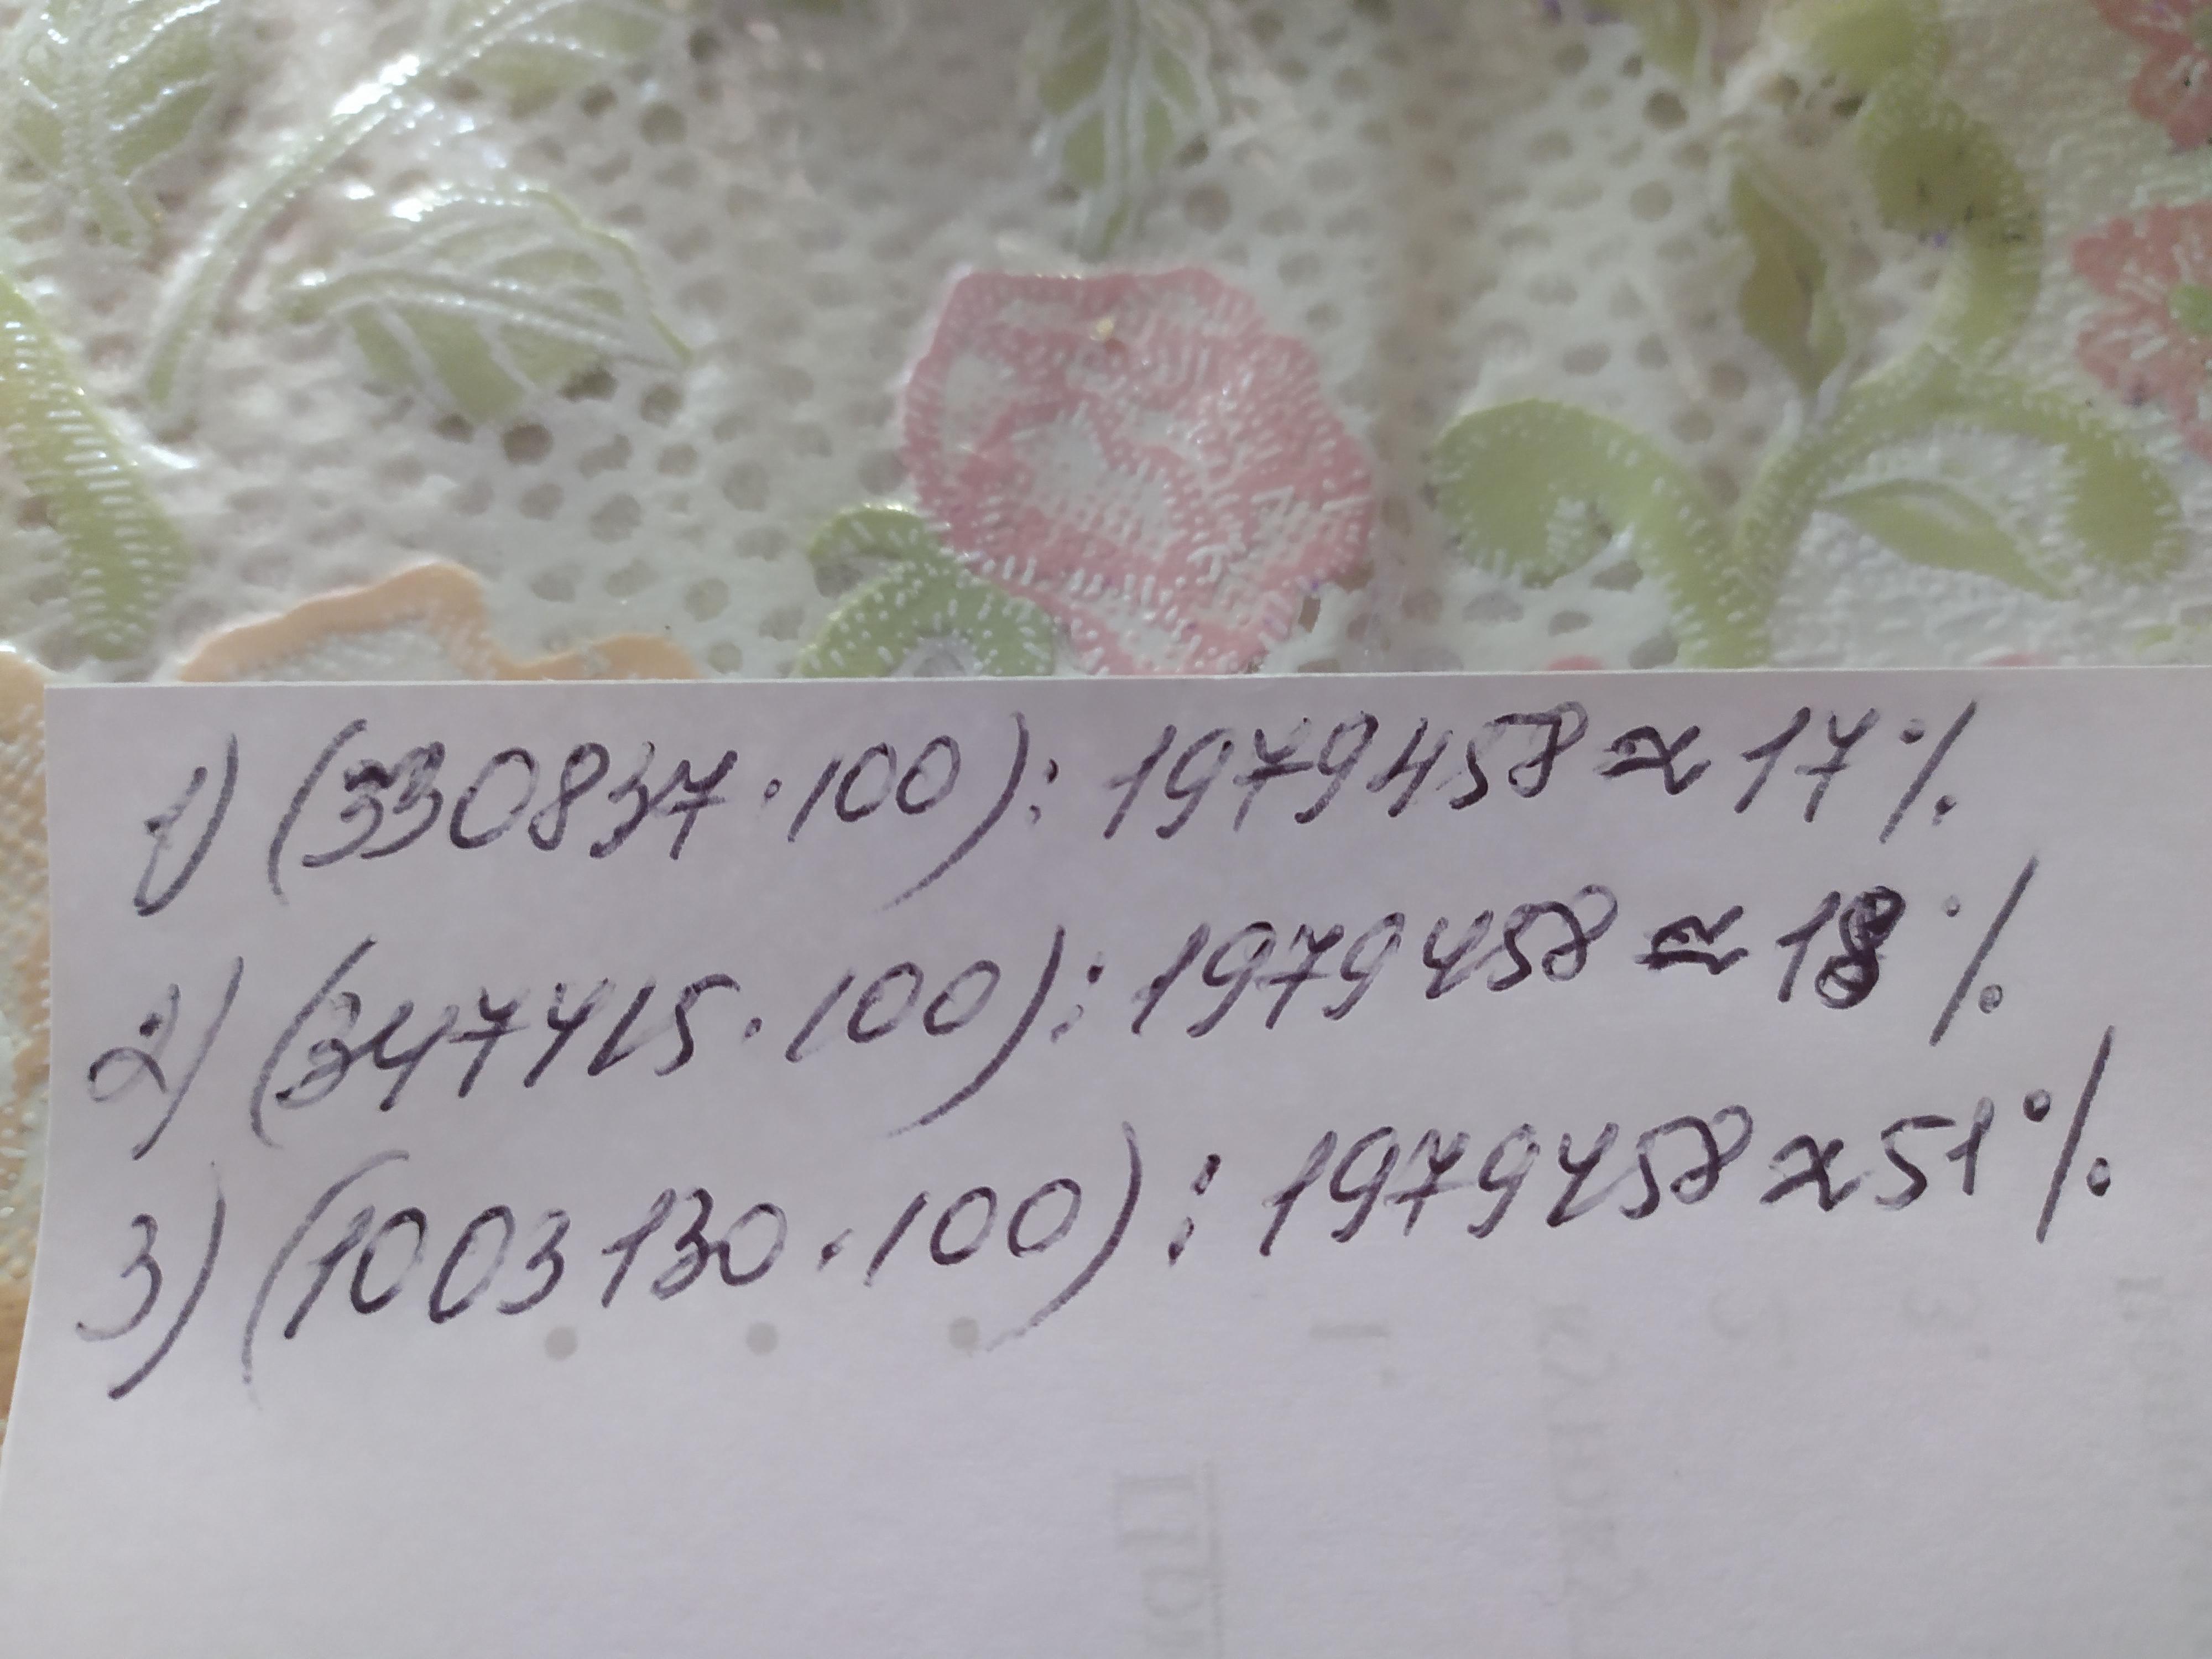 1) (330837·100):1979458≈17%
2) (347415·100):1979458≈18%
3) (1003130·100):1979458≈51%